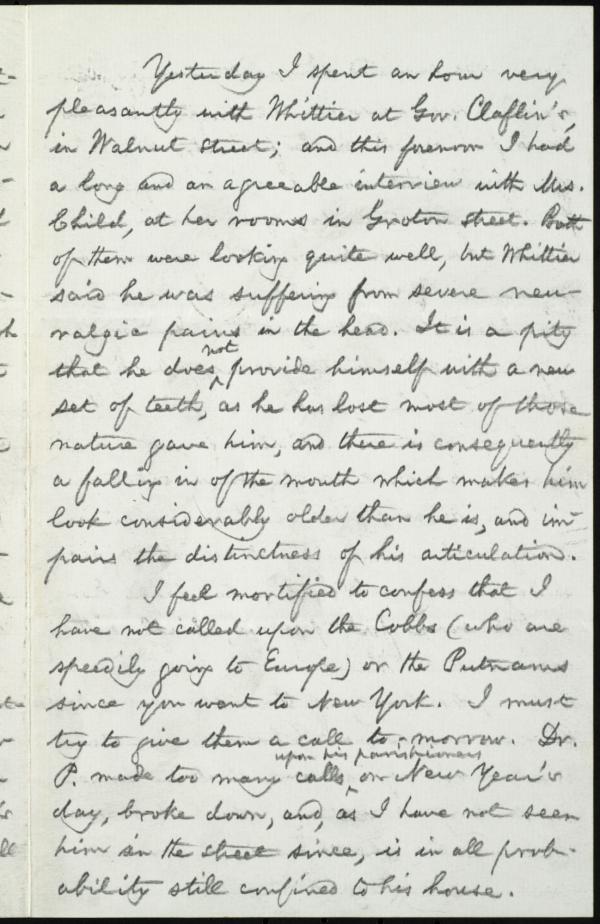 Yesterday I spent an hour very
pleasantly with Whittier at Gov. Claflin's,
in Walnut street; and this forenoon I had
a long and an agreeable interview with Mrs.
Child, at her rooms in Groton street. Both
of them were looking quite well, but Whittier
said he was suffering from severe neu-
ralgic pains in the head. It is a pity
that he does not provide himself with a new
set of teeth, as he has lost most of those
nature gave him, and there is consequently
a falling in of the mouth which makes him
look considerably older than he is, and im-
pairs the distinctness of his articulation.
I feel mortified to confess that I
have not called upon the Cobbs (who are
speedily going to Europe) or the Putnams
since you went to New York. I must
try to give them a call to-morrow. Dr.
P. made too many calls upon his parishioners on New Year's
day, broke down, and, as I have not seen
him in the street since, is in all prob-
ability still confined to his house.